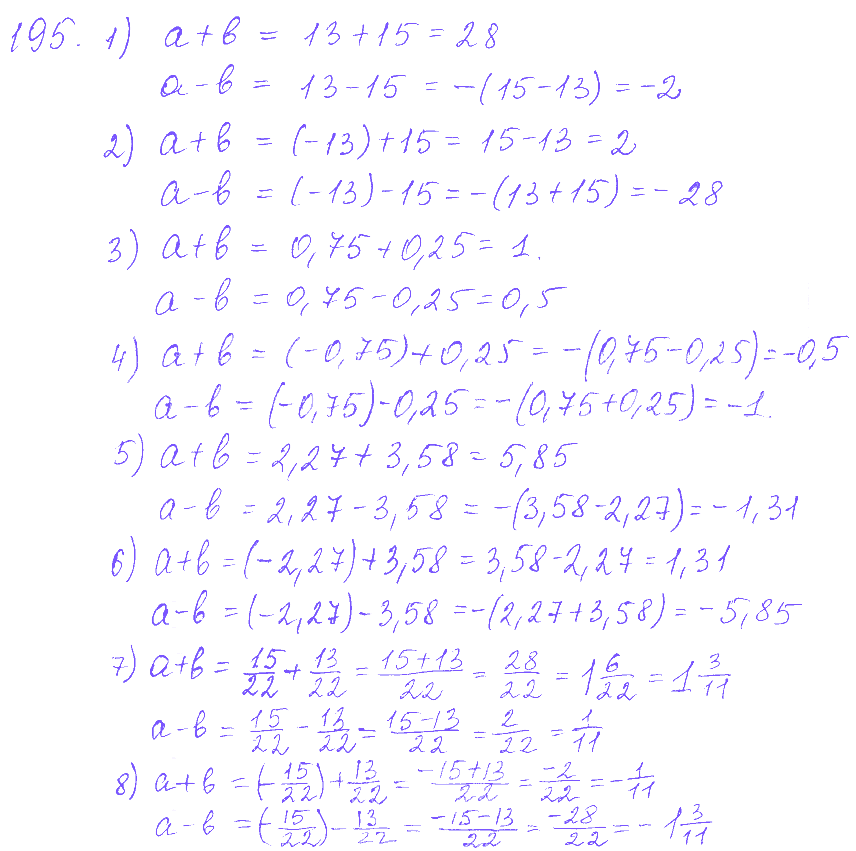 195. 1) a+b = 13+15 = 28
a-b = 13-15 = -(15-13) = -2
2) a+b = (-13)+15 = 15-13 = 2
a-b = (-13)-15 = -(13+15) = -28
3) a+b = 0,75+0,25 = 1.
a-b = 0,75-0,25 = 0,5
4) a+b = (-0,75)+0,25 = -(0,75-0,25) = -0,5
a-b = (-0,75)-0,25 = -(0,75+0,25) = -1.
5) a+b = 2,27+3,58 = 5,85
a-b = 2,27-3,58 = -(3,58-2,27) = -1,31
6) a+b = (-2,27)+3,58 = 3,58-2,27 = 1,31
a-b = (-2,27)-3,58 = -(2,27+3,58) = -5,85
7) a+b = 15/22 + 13/22 = 15+13/22 = 28/22 = 1 6/22 = 1 3/11
a-b = 15/22 - 13/22 = 15-13/22 = 2/22 = 1/11
8) a+b = (-15/22) + 13/22 = -15+13/22 = -2/22 = -1/11
a-b = (-15/22) - 13/22 = -15-13/22 = -28/22 = -1 3/11